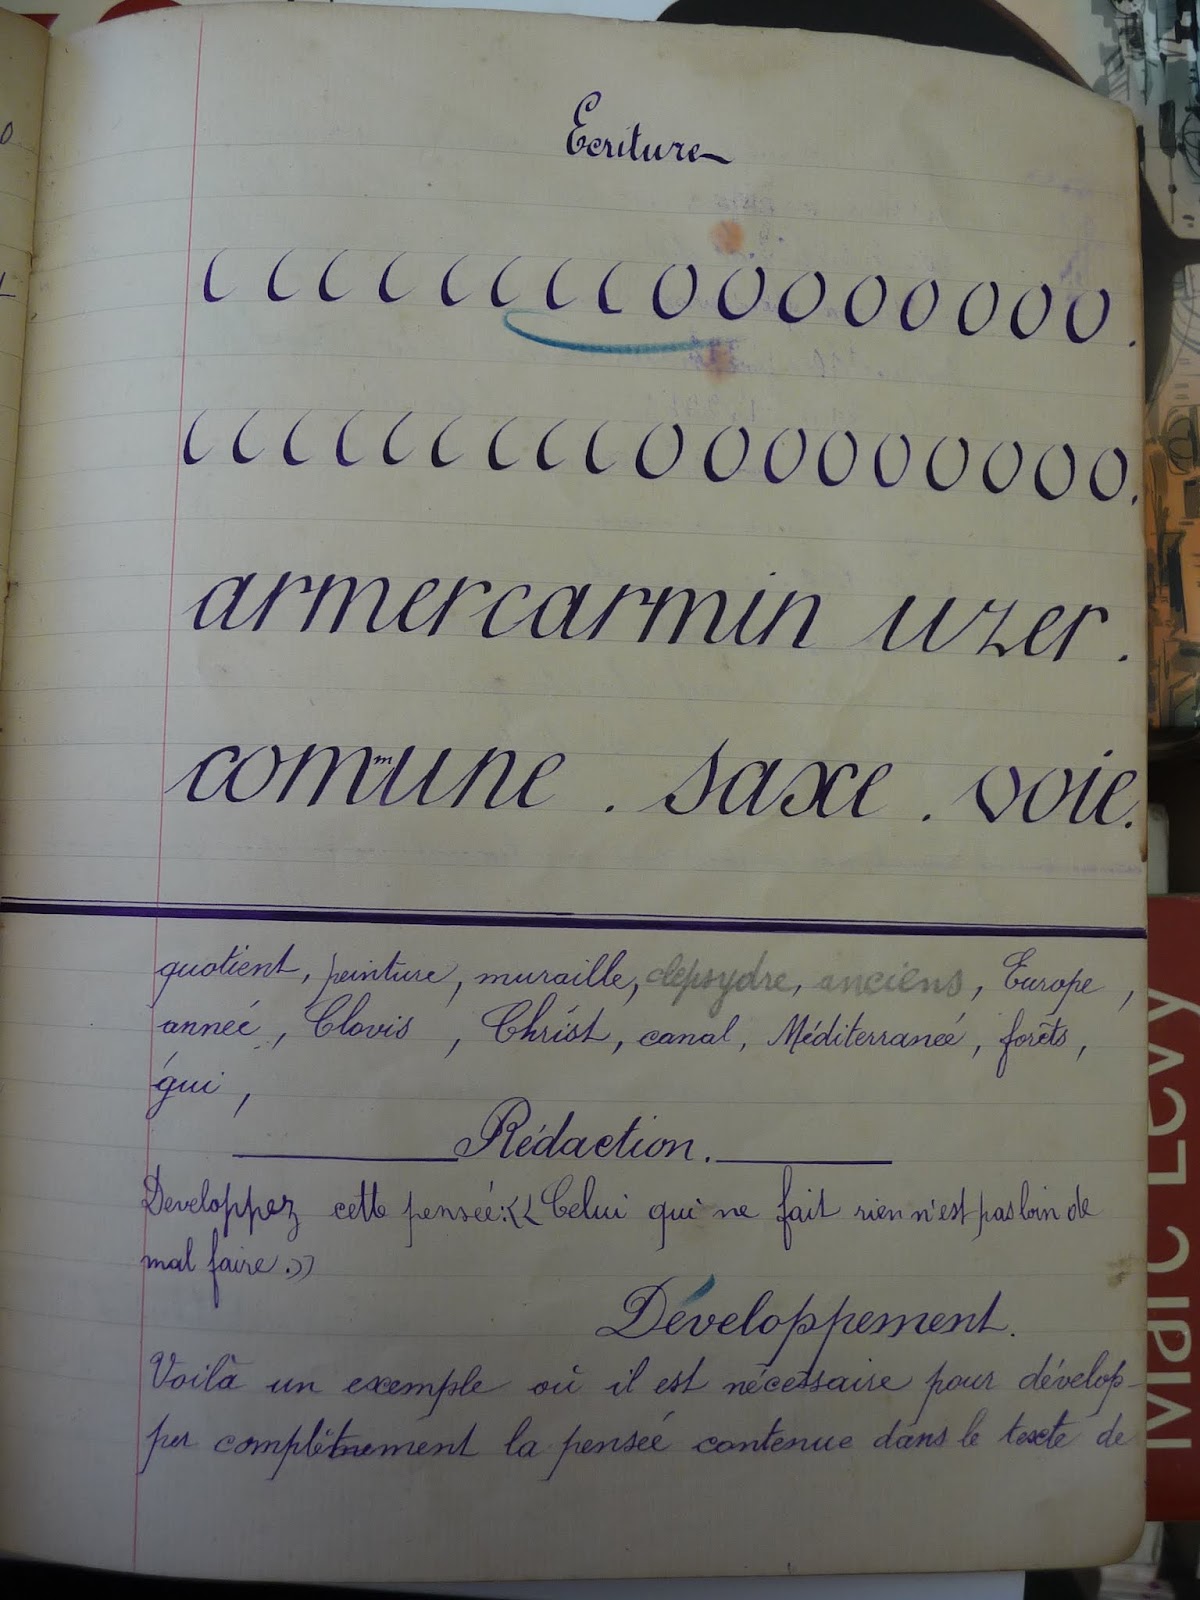 Ecriture
c c c c c c c c o o o o o o o o.
c c c c c c c c c o o o o o o o o o.
armer carmin uzer.
commune . saxe . voie.
quotient, peinture, muraille, clepsydre, anciens, Europe,
année, Clovis, Christ, canal, Méditerranée, forêts,
gui,
Rédaction.
Developpez cette pensée: << Celui qui ne fait rien n'est pas loin de
mal faire. >>
Développement.
Voilà un exemple où il est nécessaire pour dévelop-
per complètnement la pensée contenue dans le texte de
Marc Levy